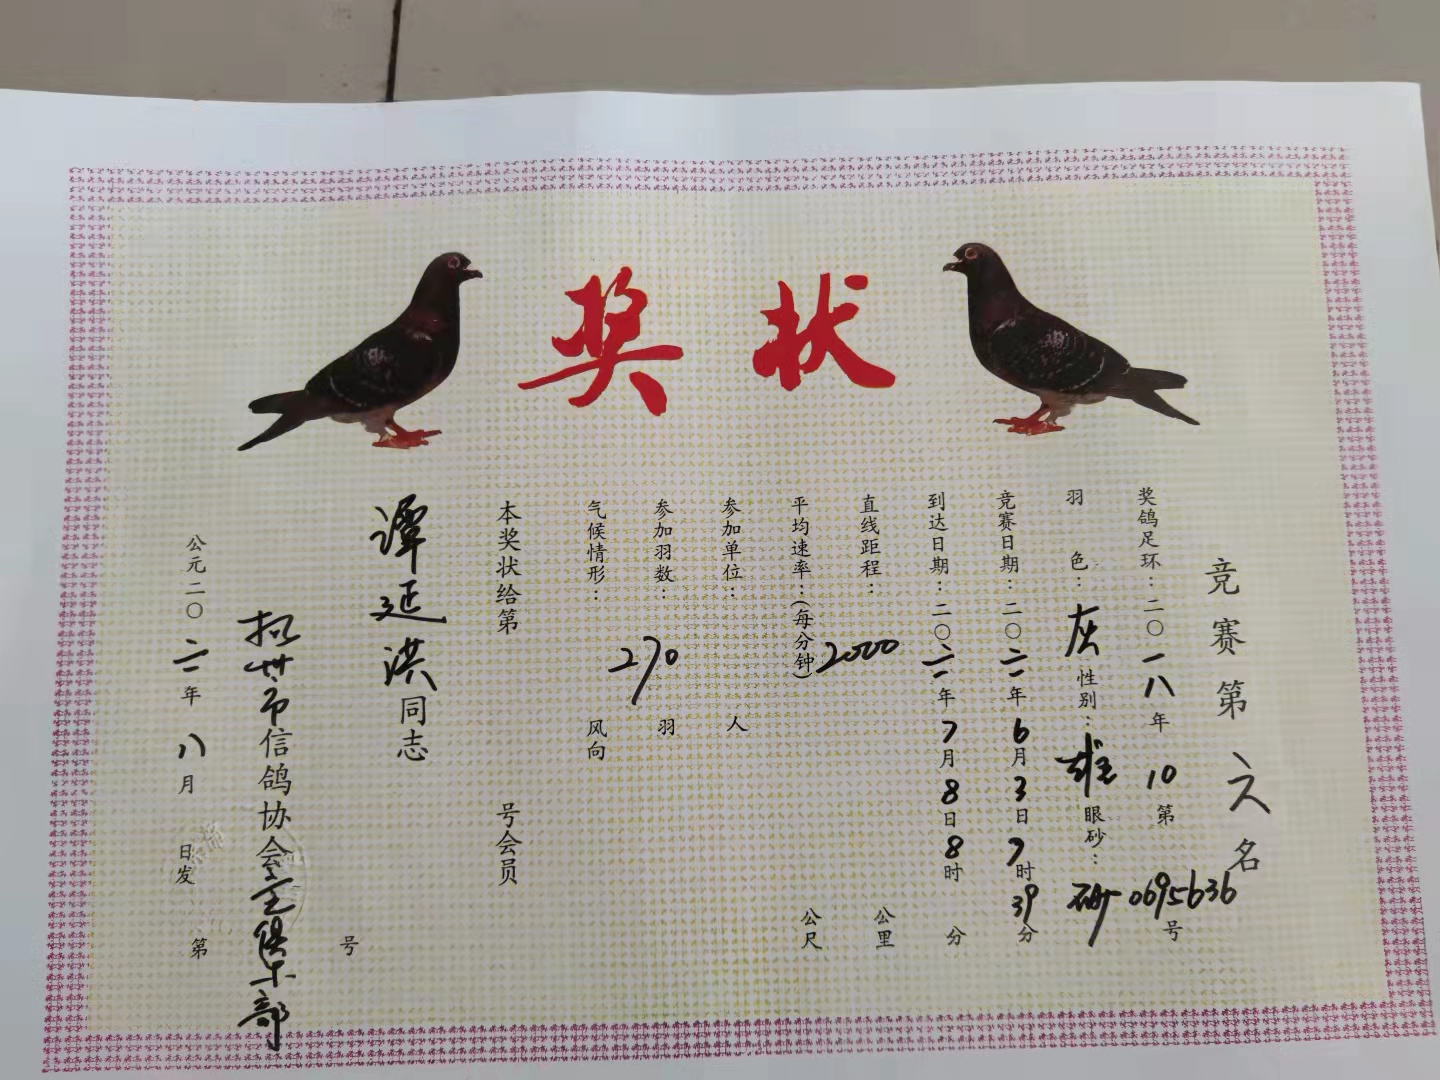 奖状
竞赛第六名
奖鸽足环：二〇一八年10第0695636号
羽色：灰性别：雄眼砂：砂
竞赛日期：二〇二一年6月3日7时39分
到达日期：二〇二一年7月8日8时分
直线距程：2000公里
平均速率：(每分钟)公尺
参加单位：人
参加羽数：270羽
气候情形：风向
本奖状给第号会员
谭延洪同志
市信鸽协会俱乐部
公元二〇二一年八月日发第号